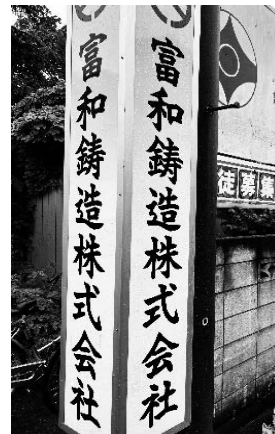 富和鋳造株式会社
富和鋳造株式会社
徒募集